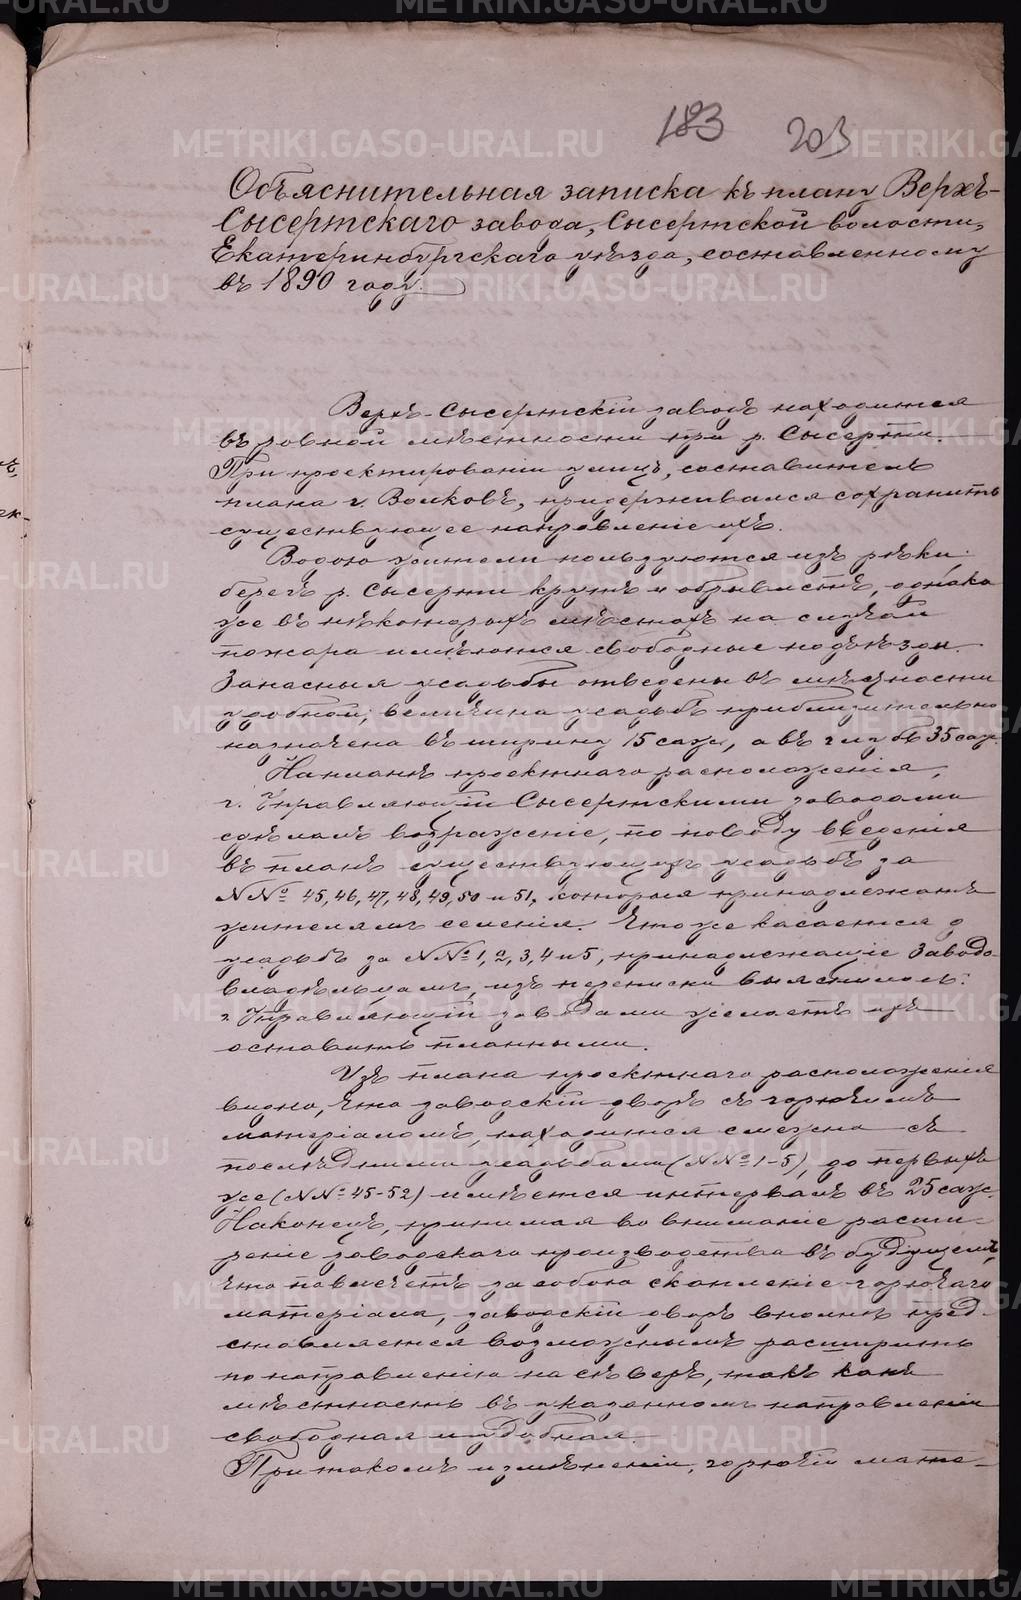 183 203
Объяснительная записка къ плану Верхъ-
Сысертскаго завода, Сысертской волости,
Екатеринбургскаго уѣзда, составленному
въ 1890 году.
Верхъ-Сысертскій заводъ находится
въ ровной мѣстности при р. Сысерти.
При проектированіи улицъ, составитель
плана г. Волковъ, придерживался сохранить
существующее направленіе ихъ.
Водою жители пользуются изъ рѣки,
берегъ р. Сысерти крутъ и обрывистъ, однако
же въ нѣкоторыхъ мѣстахъ на случай
пожара имѣются свободные подъѣзды.
Запасныя усадьбы отведены въ мѣстности
удобной; величина усадьбъ приблизительно
назначена въ ширину 15 саж, а въ глубь 35 саж.
На планѣ проектнаго расположенія,
г. Управляющій Сысертскими заводами
сдѣлалъ возраженіе, по поводу введенія
въ планъ существующихъ усадьбъ за
NNo 45, 46, 47, 48, 49, 50 и 51, которыя принадлежатъ
жителямъ селенія. Что же касается до
усадьбъ за NNo 1, 2, 3, 4 и 5, принадлежащіе Заводо-
владѣльцамъ, изъ переписки выяснилось:
г. Управляющій заводами желаетъ ихъ
оставить планными.
Изъ плана проектнаго расположенія
видно, что заводскій дворъ съ горючимъ
матеріаломъ, находится смежно съ
послѣдними усадьбами (NNo 1-5), до первыхъ
же (NNo 45-52) имѣется интервалъ въ 25 саж.
Наконецъ, принимая во вниманіе расши-
реніе заводскаго производства въ будущемъ,
что повлечетъ за собою скопленіе горючаго
матеріала, заводскій дворъ вполнѣ пред-
ставляется возможнымъ расширить
по направленію на сѣверъ, такъ какъ
мѣстность въ указанномъ направленіи
свободная и удобная.
При такомъ измѣненіи, горючій мате-